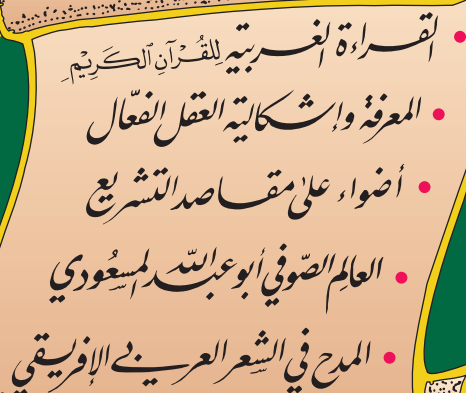 القراءة الغربية للقُرْآنِ الكَرِيْمِ
المعرفة وإشكالية العقل الفعّال
أضواء على مقاصد التشريع
العالِم الصّوفي أبو عبد اللّه المسعُودي
المدح في الشعر العربي الإفريقي